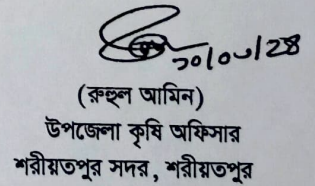 (রুহুল আমিন)
উপজেলা কৃষি অফিসার
শরীয়তপুর সদর, শরীয়তপুর